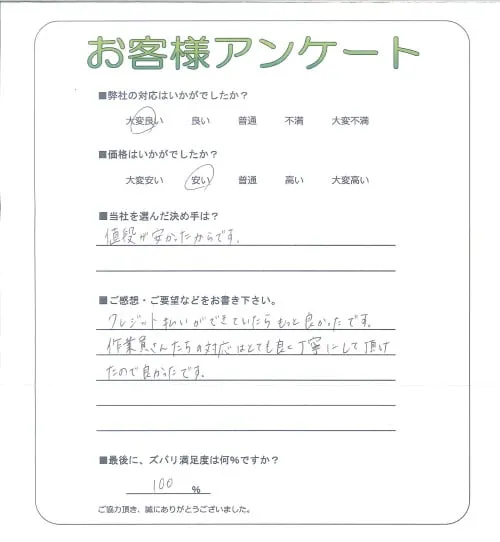 お客様アンケート
■弊社の対応はいかがでしたか？
大変良い 良い 普通 不満 大変不満
■価格はいかがでしたか？
大変安い 安い 普通 高い 大変高い
■当社を選んだ決め手は？
値段が安かったからです。
■ご感想・ご要望などをお書き下さい。
クレジット払いができていたらもっと良かったです。
作業員さんたちの対応はとても良く丁寧にして頂け
たので良かったです。
■最後に、ズバリ満足度は何%ですか？
100 %
ご協力頂き、誠にありがとうございました。